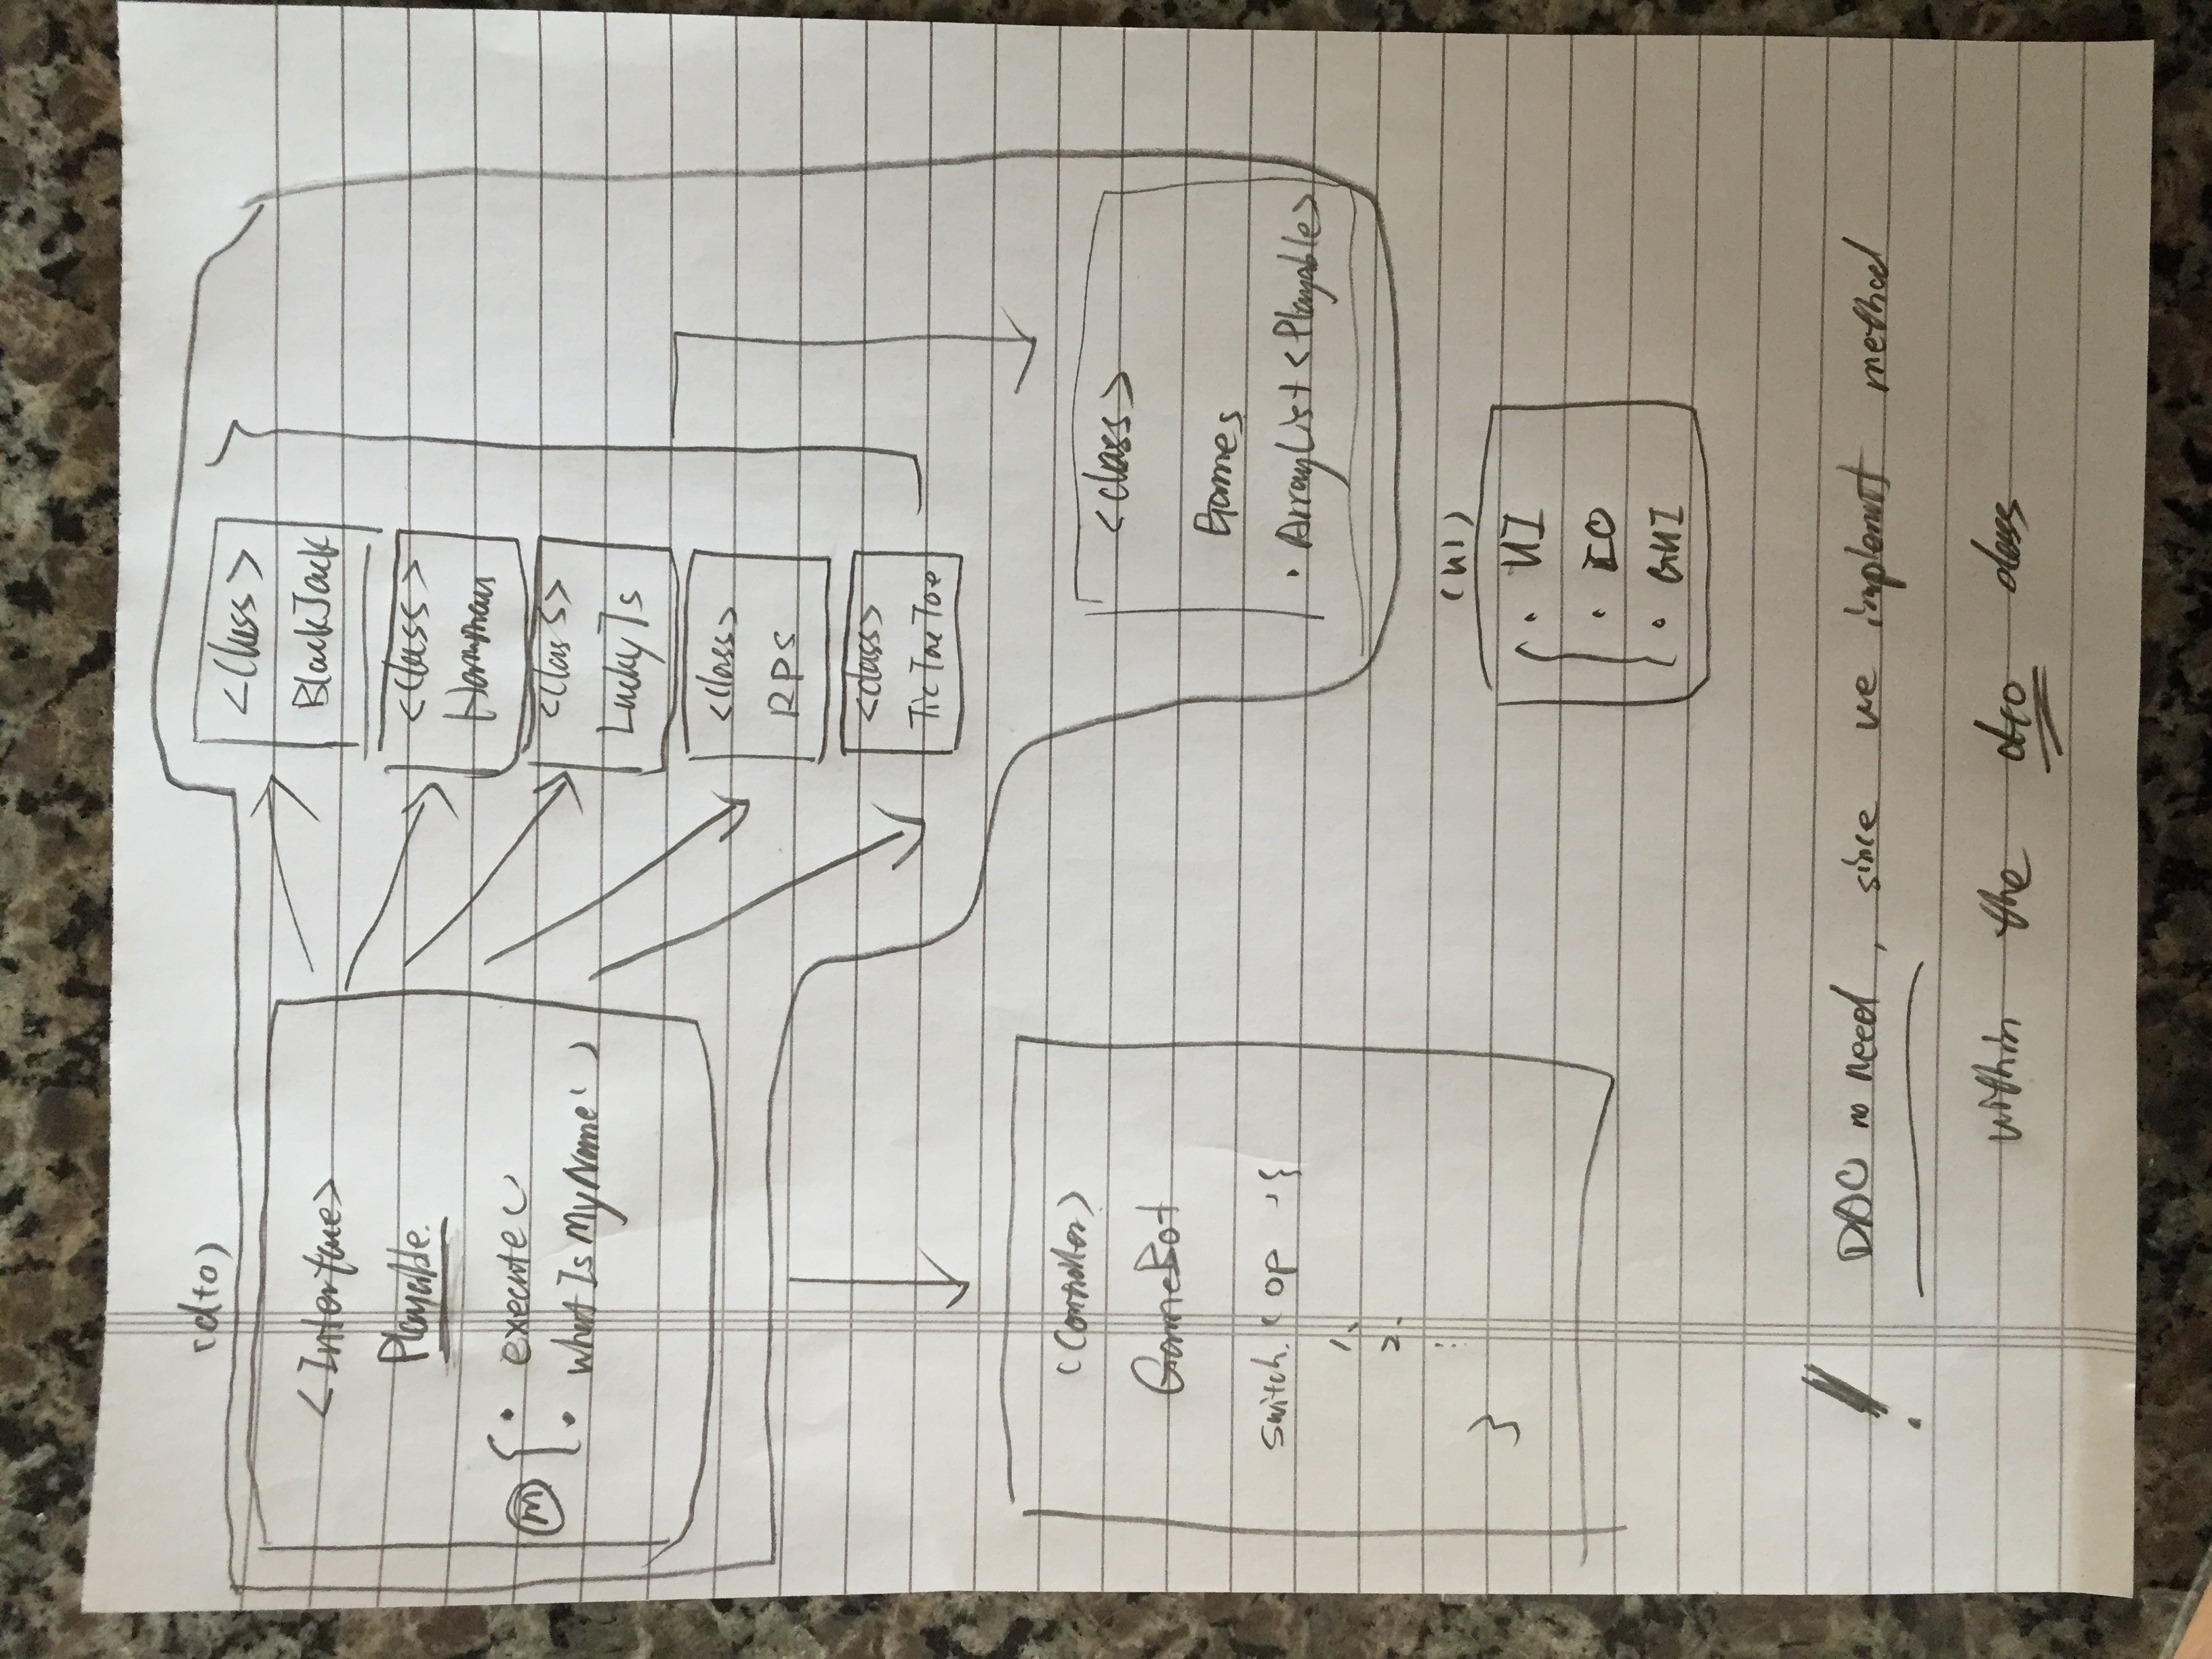 (dto)
<Interface>
Playable.
m
• execute()
• whatIsMyName()
<Class>
BlackJack
<class>
<class>
Lucky7s
<class>
RPS
<class>
TicTacToe
(Controller)
GameBot
switch. (op) {
1.
2.
⋮
}
<class>
Games
• ArrayList<Playable>
(UI)
• UI
• IO
• GUI
! DAO no need, since we implemt method
within the dto class